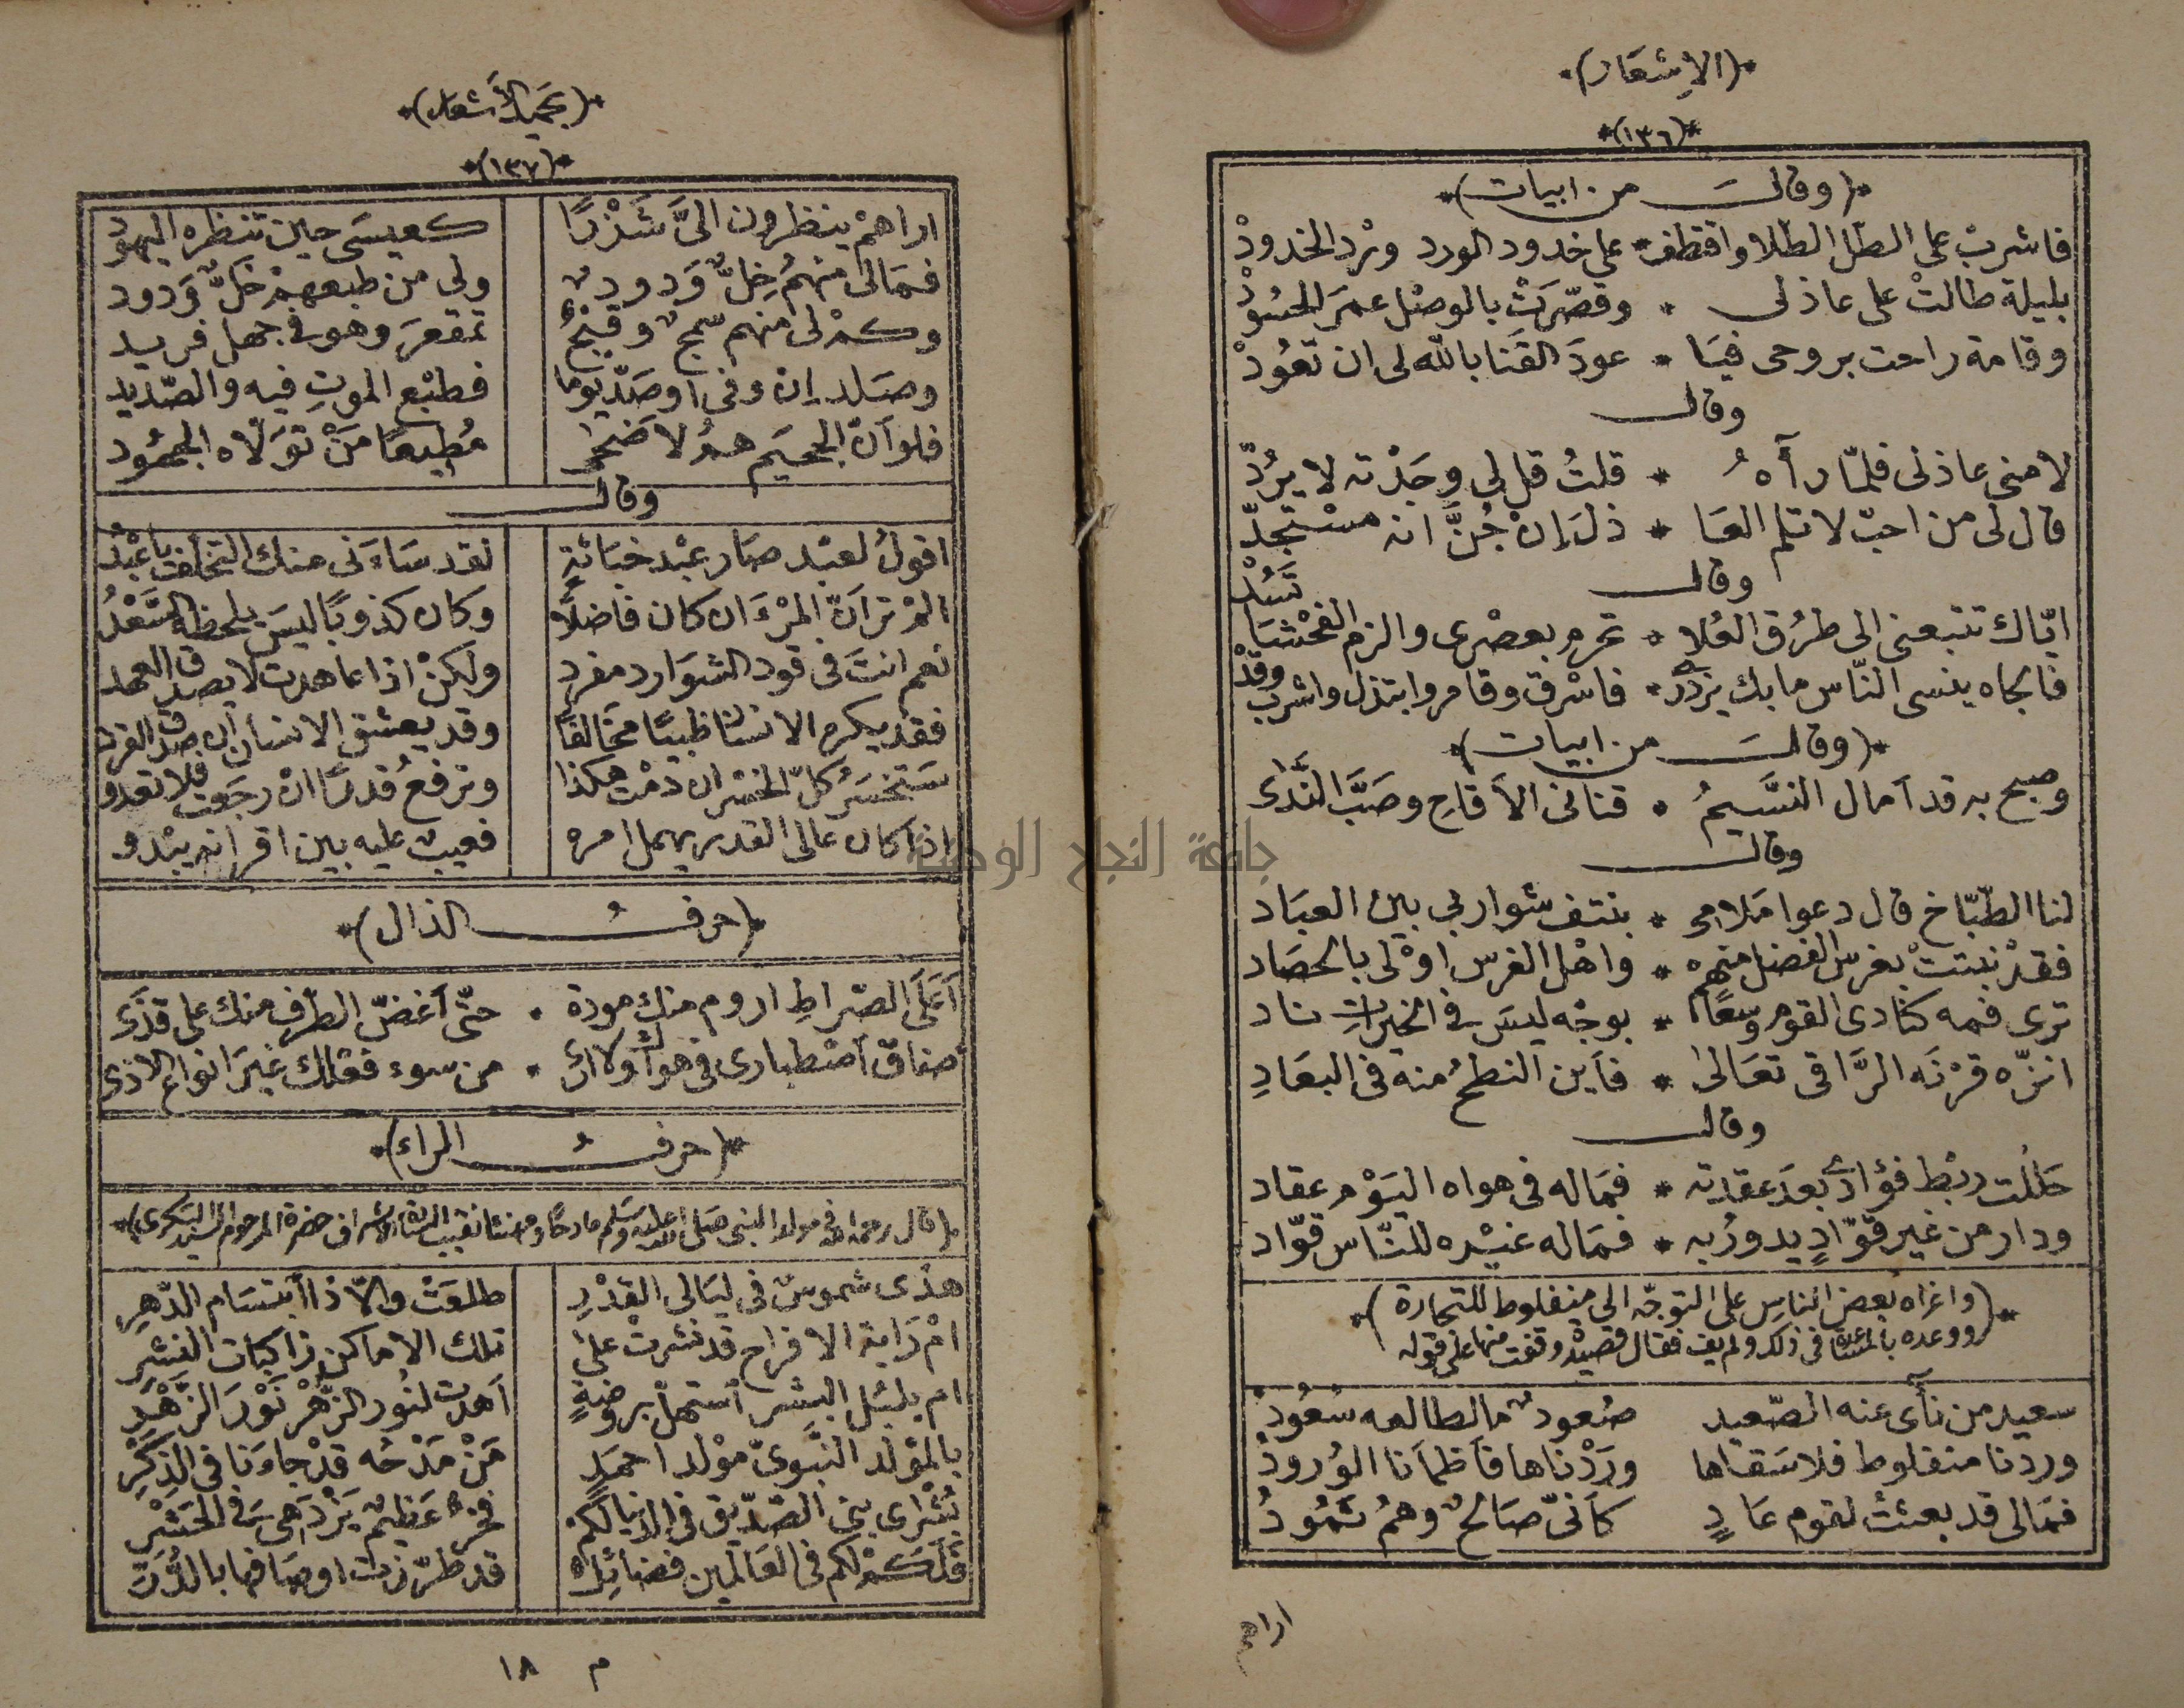 *(الاشعار)*
*(١٣٦)*
*(وقال من ابيات)*
فاشرب على الطل الطلا واقتطف * على خدود الورد ورد الخدودْ
بليلة طالتْ على عاذلى * وقصّرَتْ بالوصْل عمرَ الحسُودْ
وقامة راحت بروحى فيَا * عودَ القَنا بالله لى ان تعُودْ
وقال
لامنى عاذلى فلمّا رأهُ * قلتُ قل لى وجَدْته لا يرُدّ
قال لى من احبّ لا تلم العَا * ذلَ إنْ جُنَّ انه مسْتجدّ
وقال
ايّاك تتبعنى الى طرُق العُلا * تحرم بعصْرى والزم الفحْشَا تَسُدْ
فالجاه ينسى النّاس ما بك يزدرى * فاسْرق وقامر وابتذل واشرب وقدْ
*(وقال من ابيات)*
وصبح به قد آمال النسَّيمُ * قنانى الآقاحِ وصَبَّ النَّدَى
وقال
لنا الطبّاخ قال دعوا مَلامى * بنتف شواربى بين العبَاد
فقدْ نبتتْ بغرس الفضل منهم * واهْل الغرس اوْلى بالحصَاد
ترى فمه كنادى القوم وسعًا * بوجْه ليسَ فى الخيراتِ ناد
انزّه قرْنَه الرَّاقى تعَالىٰ * فآين النطحُ منه فى البعَادِ
وقال
حَللْت ربْط فؤادى بعدَ عقدته * فمَاله فى هواه اليَوْم عقاد
ودار من غير قوّادٍ يدورُ به * فمَاله غيْره للنّاس قوّاد
*(واغراه بعض الناس على التوجّه الى منفلوط للتجارة)*
ووعده بالمساعدة فى ذلك ولم يف فقال قصيدة وقفت منها على قوله
سعيد من نآى عنه الصّعيد صُعود ما لطالعه سُعُودْ
وردنا منفلوط فلا سَقاها ورَدْناها فآظمآنا الوُرودُ
فمَالى قد بعثتُ لقوم عَادٍ كآنىّ صَالحٌ وهمُ ثمُودُ
اراهم
*(بحميد الأشعار)*
*(١٣٧)*
اراهمْ ينظرون الىَّ شَذْرًا كعيسَى حين تنظره اليهوُد
فمَالى منهمُ خِلٌّ وَدودٌ ولى من طبعهمْ خَلٌّ وَدود
وكمْ لى منهم سمجٌ وقبيْحٌ تمقعرَ وهو فى جهل فريد
وصَلد إن وفى أوصَدّ يوما فطبْع الموتِ فيه والصّديد
فلوآنّ الجحيَم همُ لاضحَىٰ مُطِيعًا مَنْ توَلّاه الجحُود
وقال
اقولُ لعبْد صار عبْد خبَاثةٍ لقد سَاءَنى منك التخلف يا عبْدُ
المْ ترآنّ المرْءَ ان كان فاضلاً وكان كذوبًا ليسَ يلحظه السَّعْدُ
نعم انتَ فى قود الشوَارد مفرد ولكنْ اذا عاهدت لا يصدق العهد
فقد يكرم الانسَانُ ظبيًا مخالفًا وقد يعشق الانسان ان صدق القرد
سَتخسَرُ كلّ الخسْر ان دمْت هكذا وترفعُ قدرًا انْ رجَعت فلا تعدو
اذا كان عالى القدر يهمل امره فعيبٌ عليه بين اقرانه يبْدو
*(حرفُ الذال)*
آعَلَى الصّراطِ اروم منك مودة * حتّى آغضّ الطرْف منك على قذَى
ضاق اصْطبارى فى هواك ولا ارى * من سوء فعلك غيَر انواع الاذى
*(حرفُ الراء)*
*(قال رحمه الله فى مولد النبى صلى الله عليه وسلم مادحًا ومهنئا نقيب السادة الاشراف حضرة المرحوم السيد البكرى)*
هذى شموسٌ فى ليَالى القدْرِ طلعَتْ والّا ذا ابتسَام الدّهرِ
امْ رَاية الافراح قد نشرتْ علىٰ تلك الاماكن زاكيات النشرِ
ام بلبُل البشر استهلّ بروضةٍ آهدت لنُور الزّهْر نَوْرَ الزّهْر
بالموْلد النّبوىّ موْلد احمَدٍ مَنْ مَدْحُه قدْ جاءَنا فى الذِكْرِ
بُشْرَى بنى الصّدّيق فى الدنيا لكمْ فخرٌ عَظيمٌ يَزْدَهى فى الحَشْرِ
فلَكمْ لكم فى العَالمين فضائِلٌ قد طرّزت اوصَافها بالدُّرَّ
م ١٨
جامعة النجاح الوطنية